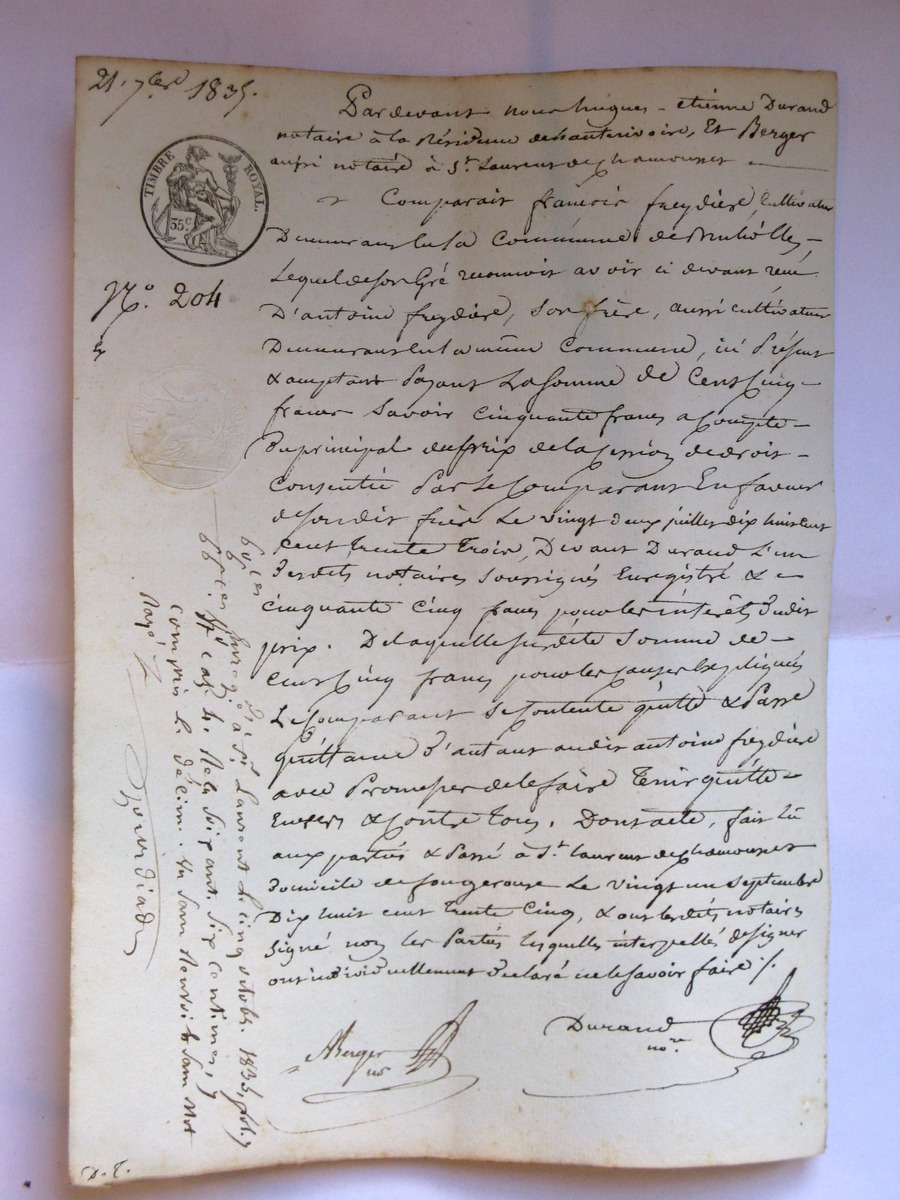 21. 7bre 1835.
TIMBRE ROYAL.
35c
No. 204
Pardevant nous - etienne Durand
notaire à la Résidence dehauterivoire, Et Berger
aussi notaire à St. Laurent dechamousset
Comparait francois freydiere, Cultivateur
Demeurant en la Commune de
Lequel deson Gré reconnoit avoir ci devant recu
D'antoine freydiere, Son frère, aussi cultivateur
Demeurant en la même Commune, ici Présent
& acceptant Payant La Somme de Cent Cinq
francs Savoir Cinquante francs a Compte
Duprincipal duprix dela Cession de droit
Consentie Par Le Comparant En faveur
desondit frère Le vingt deux juillet dix huit cent
cent trente trois, Devant Durand L'un
Desdits notaires Soussignés Enregistré & -
cinquante cinq francs pour les intérêts dudit
prix. De laquelle susdite Somme de
cent Cinq francs pour les causes Expliqués
Le Comparant Se Contente quitte & Passe
quittance d'autant audit antoine freydiere
avec Promesse de le faire Tenir quitte
Envers & Contre tous. Dont acte, fait Lu
aux parties & Passé à St. laurent dechamousset
Domicile de fougerouse Le vingt un Septembre
Dix huit cent trente Cinq, & ont lesdits notaires
Signé non les Parties lesquelles interpellés de signer
ont individuellement Déclaré ne le savoir faire ./.
ABerger
Durand
nore.
Enreg. à St. Laurent le cinq octobre 1835, fol.
compris le décime.
D.T.